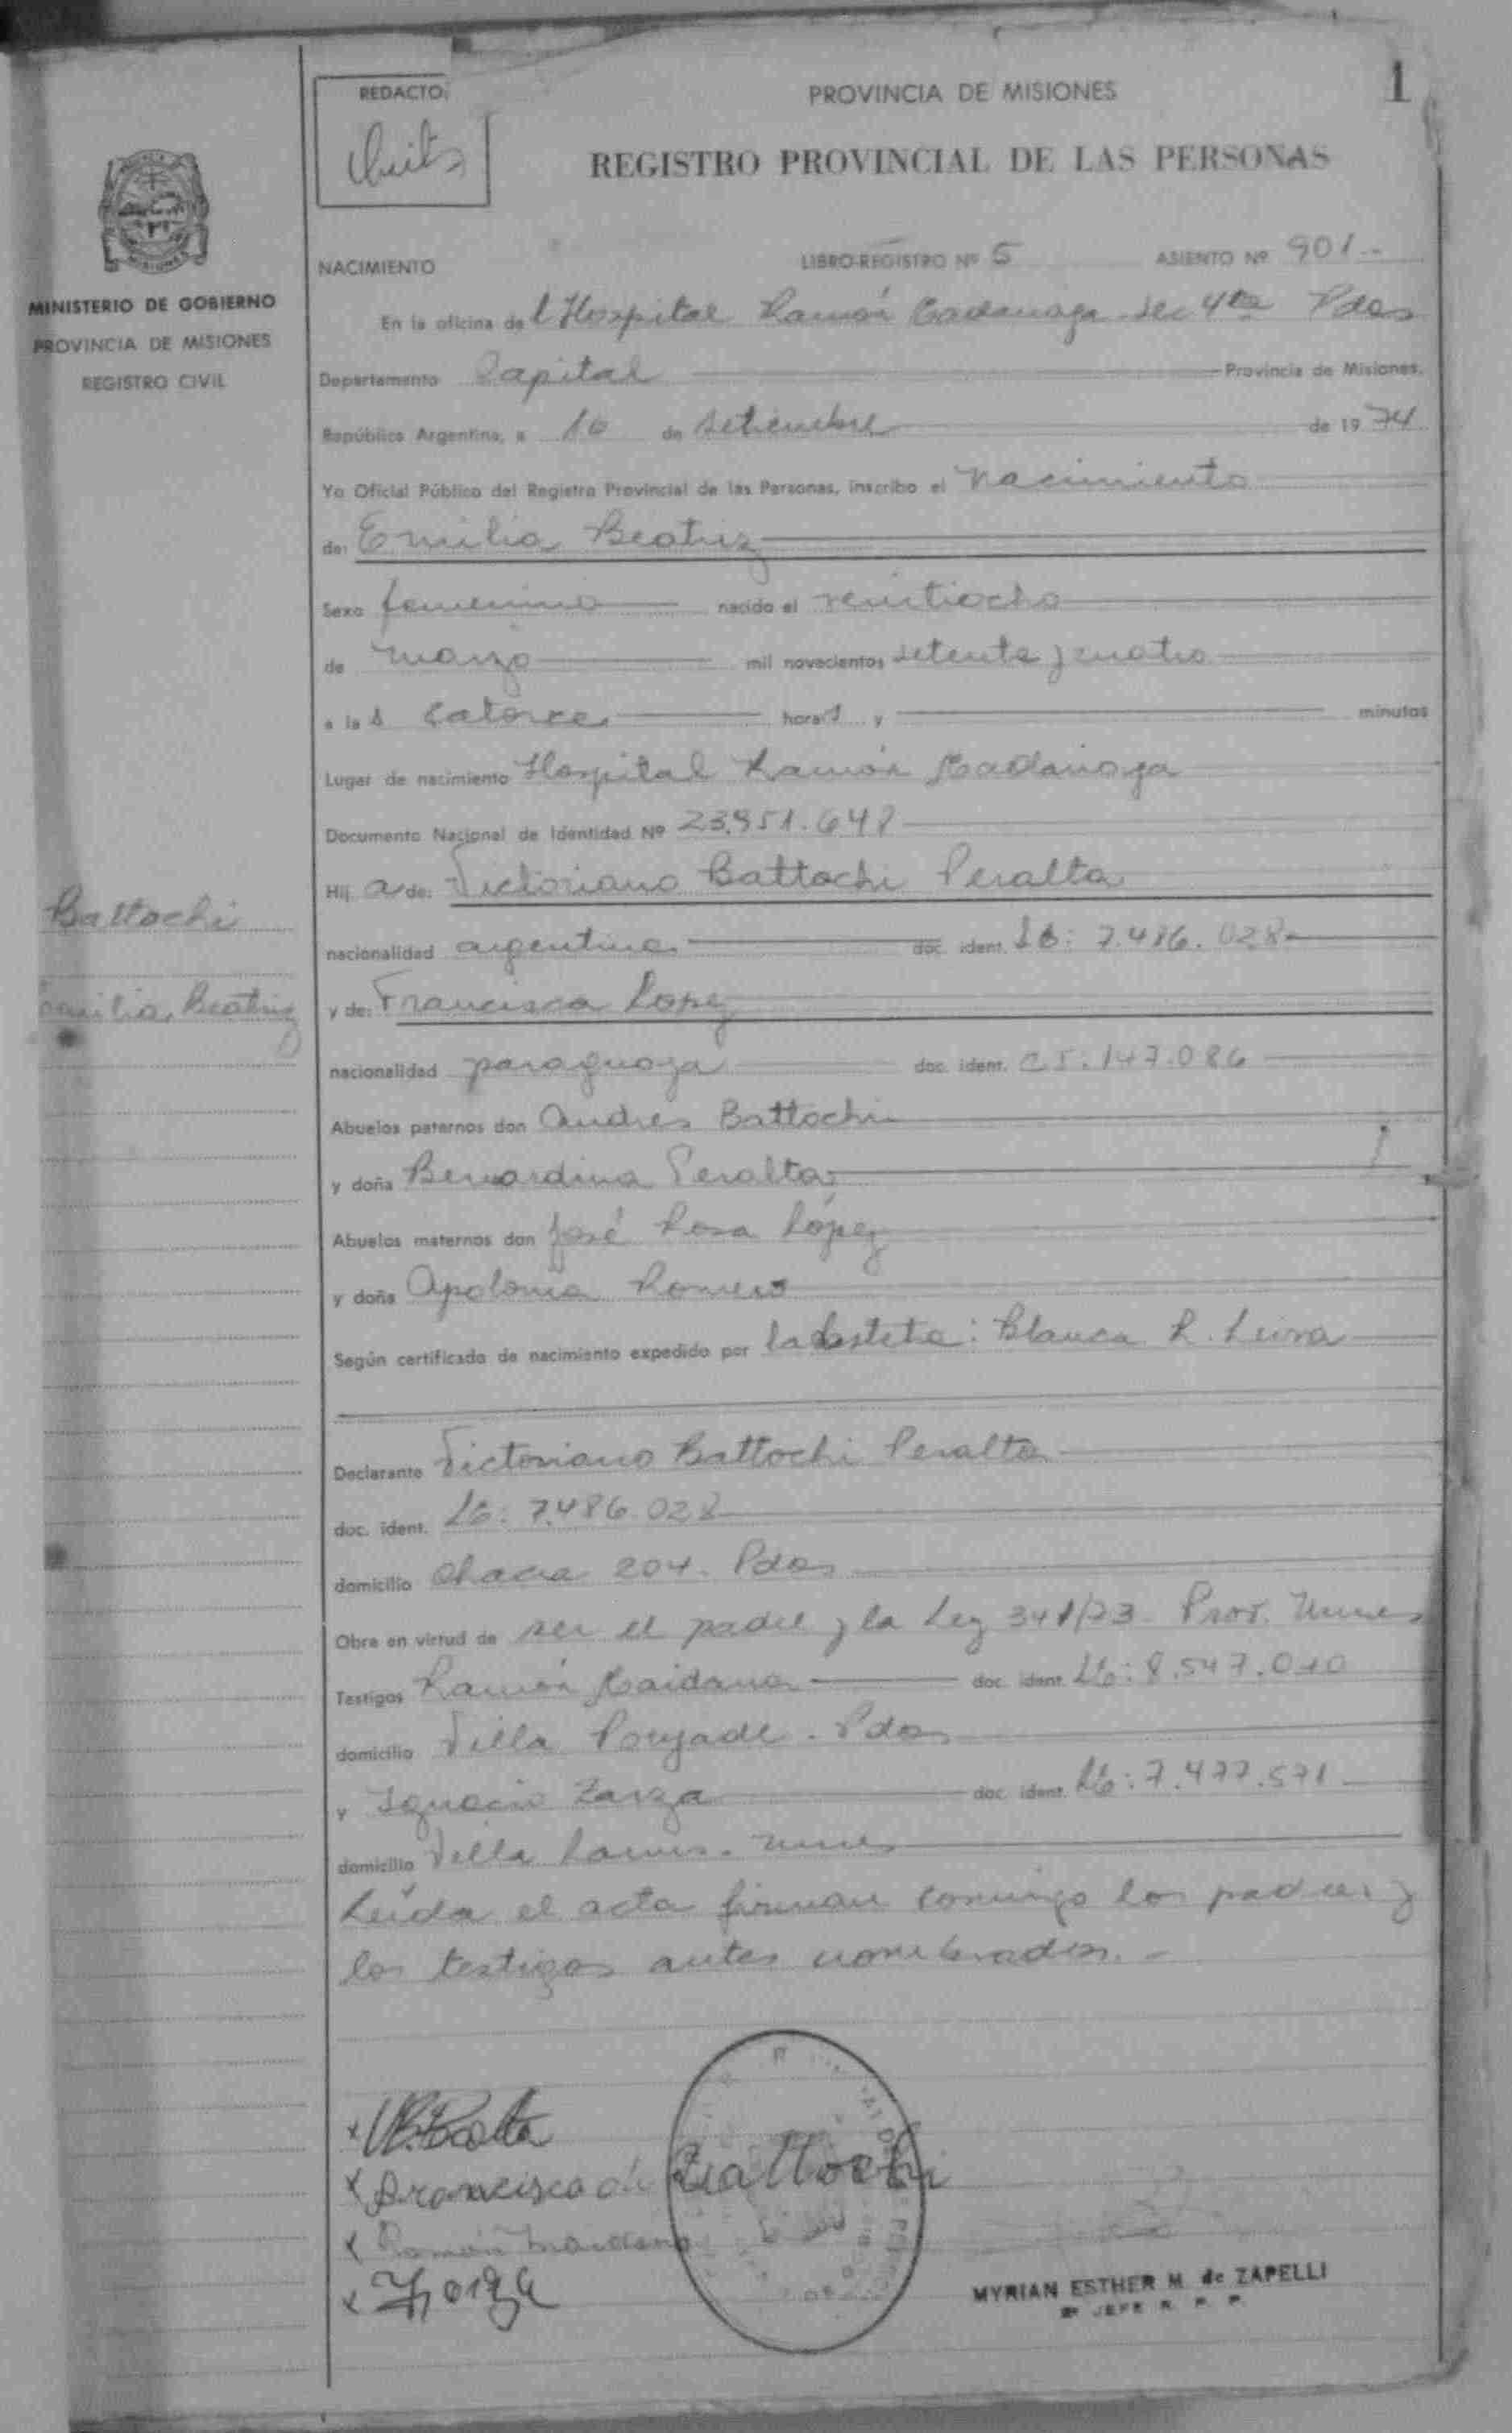 REDACTO:
PROVINCIA DE MISIONES
1
REGISTRO PROVINCIAL DE LAS PERSONAS
NACIMIENTO
LIBRO-REGISTRO Nº 5
ASIENTO Nº 901
MINISTERIO DE GOBIERNO
PROVINCIA DE MISIONES
REGISTRO CIVIL
En la oficina del Hospital Ramón Madariaga Sec 4ta Pdas
Departamento Capital Provincia de Misiones,
República Argentina, a 16 de setiembre de 1974
Yo Oficial Público del Registro Provincial de las Personas, inscribo el nacimiento
de: Emilia Beatriz
Sexo femenino nacido el veintiocho
de marzo mil novecientos setenta y cuatro
a las catorce horas y minutos
Lugar de nacimiento Hospital Ramón Madariaga
Documento Nacional de Identidad Nº 23.951.648
Hij a de: Victoriano Battochi Peralta
nacionalidad argentina doc. ident. LE: 7.486.028
y de: Francisca Lopez
nacionalidad paraguaya doc. ident. CI: 147.086
Abuelos paternos don Andres Battochi
y doña Bernardina Peralta
Abuelos maternos don José Rosa López
y doña Apolonia Romero
Según certificado de nacimiento expedido por la obsteta: Blanca R. Leiva
Declarante Victoriano Battochi Peralta
doc. ident. LE: 7.486.028
domicilio Chacra 204. Pdas
Obra en virtud de ser el padre y la Ley 341/73
Testigos Ramón Maidana doc. ident. LE: 8.547.010
domicilio Villa Poujade. Pdas
y Ignacio Zarza doc. ident. LE: 7.477.571
domicilio Villa
Leída el acta firman conmigo los padres y
los testigos antes nombrados.-
Battochi
Emilia Beatriz
x
x Francisca de Battochi
x Ramón Maidana
x
MYRIAN ESTHER M. de ZAPELLI
JEFE R. P. P.